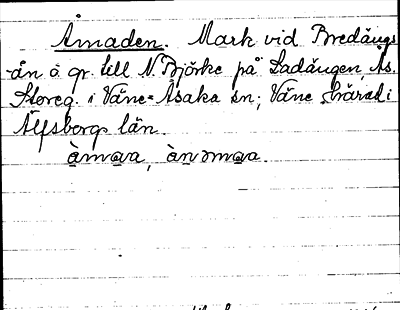 Åmaden. Mark vid Bredängs
-ån å gr. till N. Björke på Ladängen, Ås.
Storeg. i Väne-Åsaka sn; Väne härad i
Älfsborgs län.
åmava, ån ɔmava.